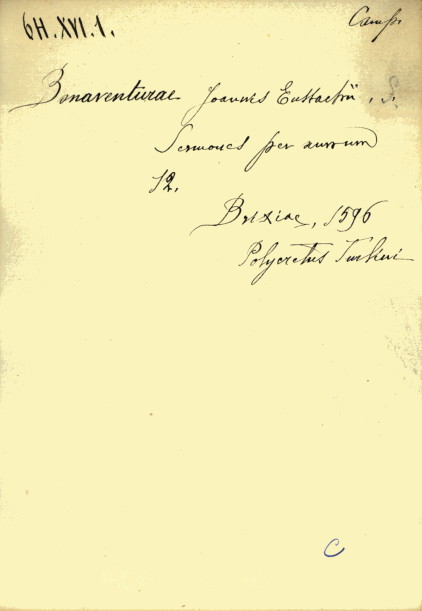 6H.XVI.1. Camp.
Bonaventurae Joannis Eustachii, S.
Sermones per annum
12.
Brixiae, 1596
Polycretus Turlini
C